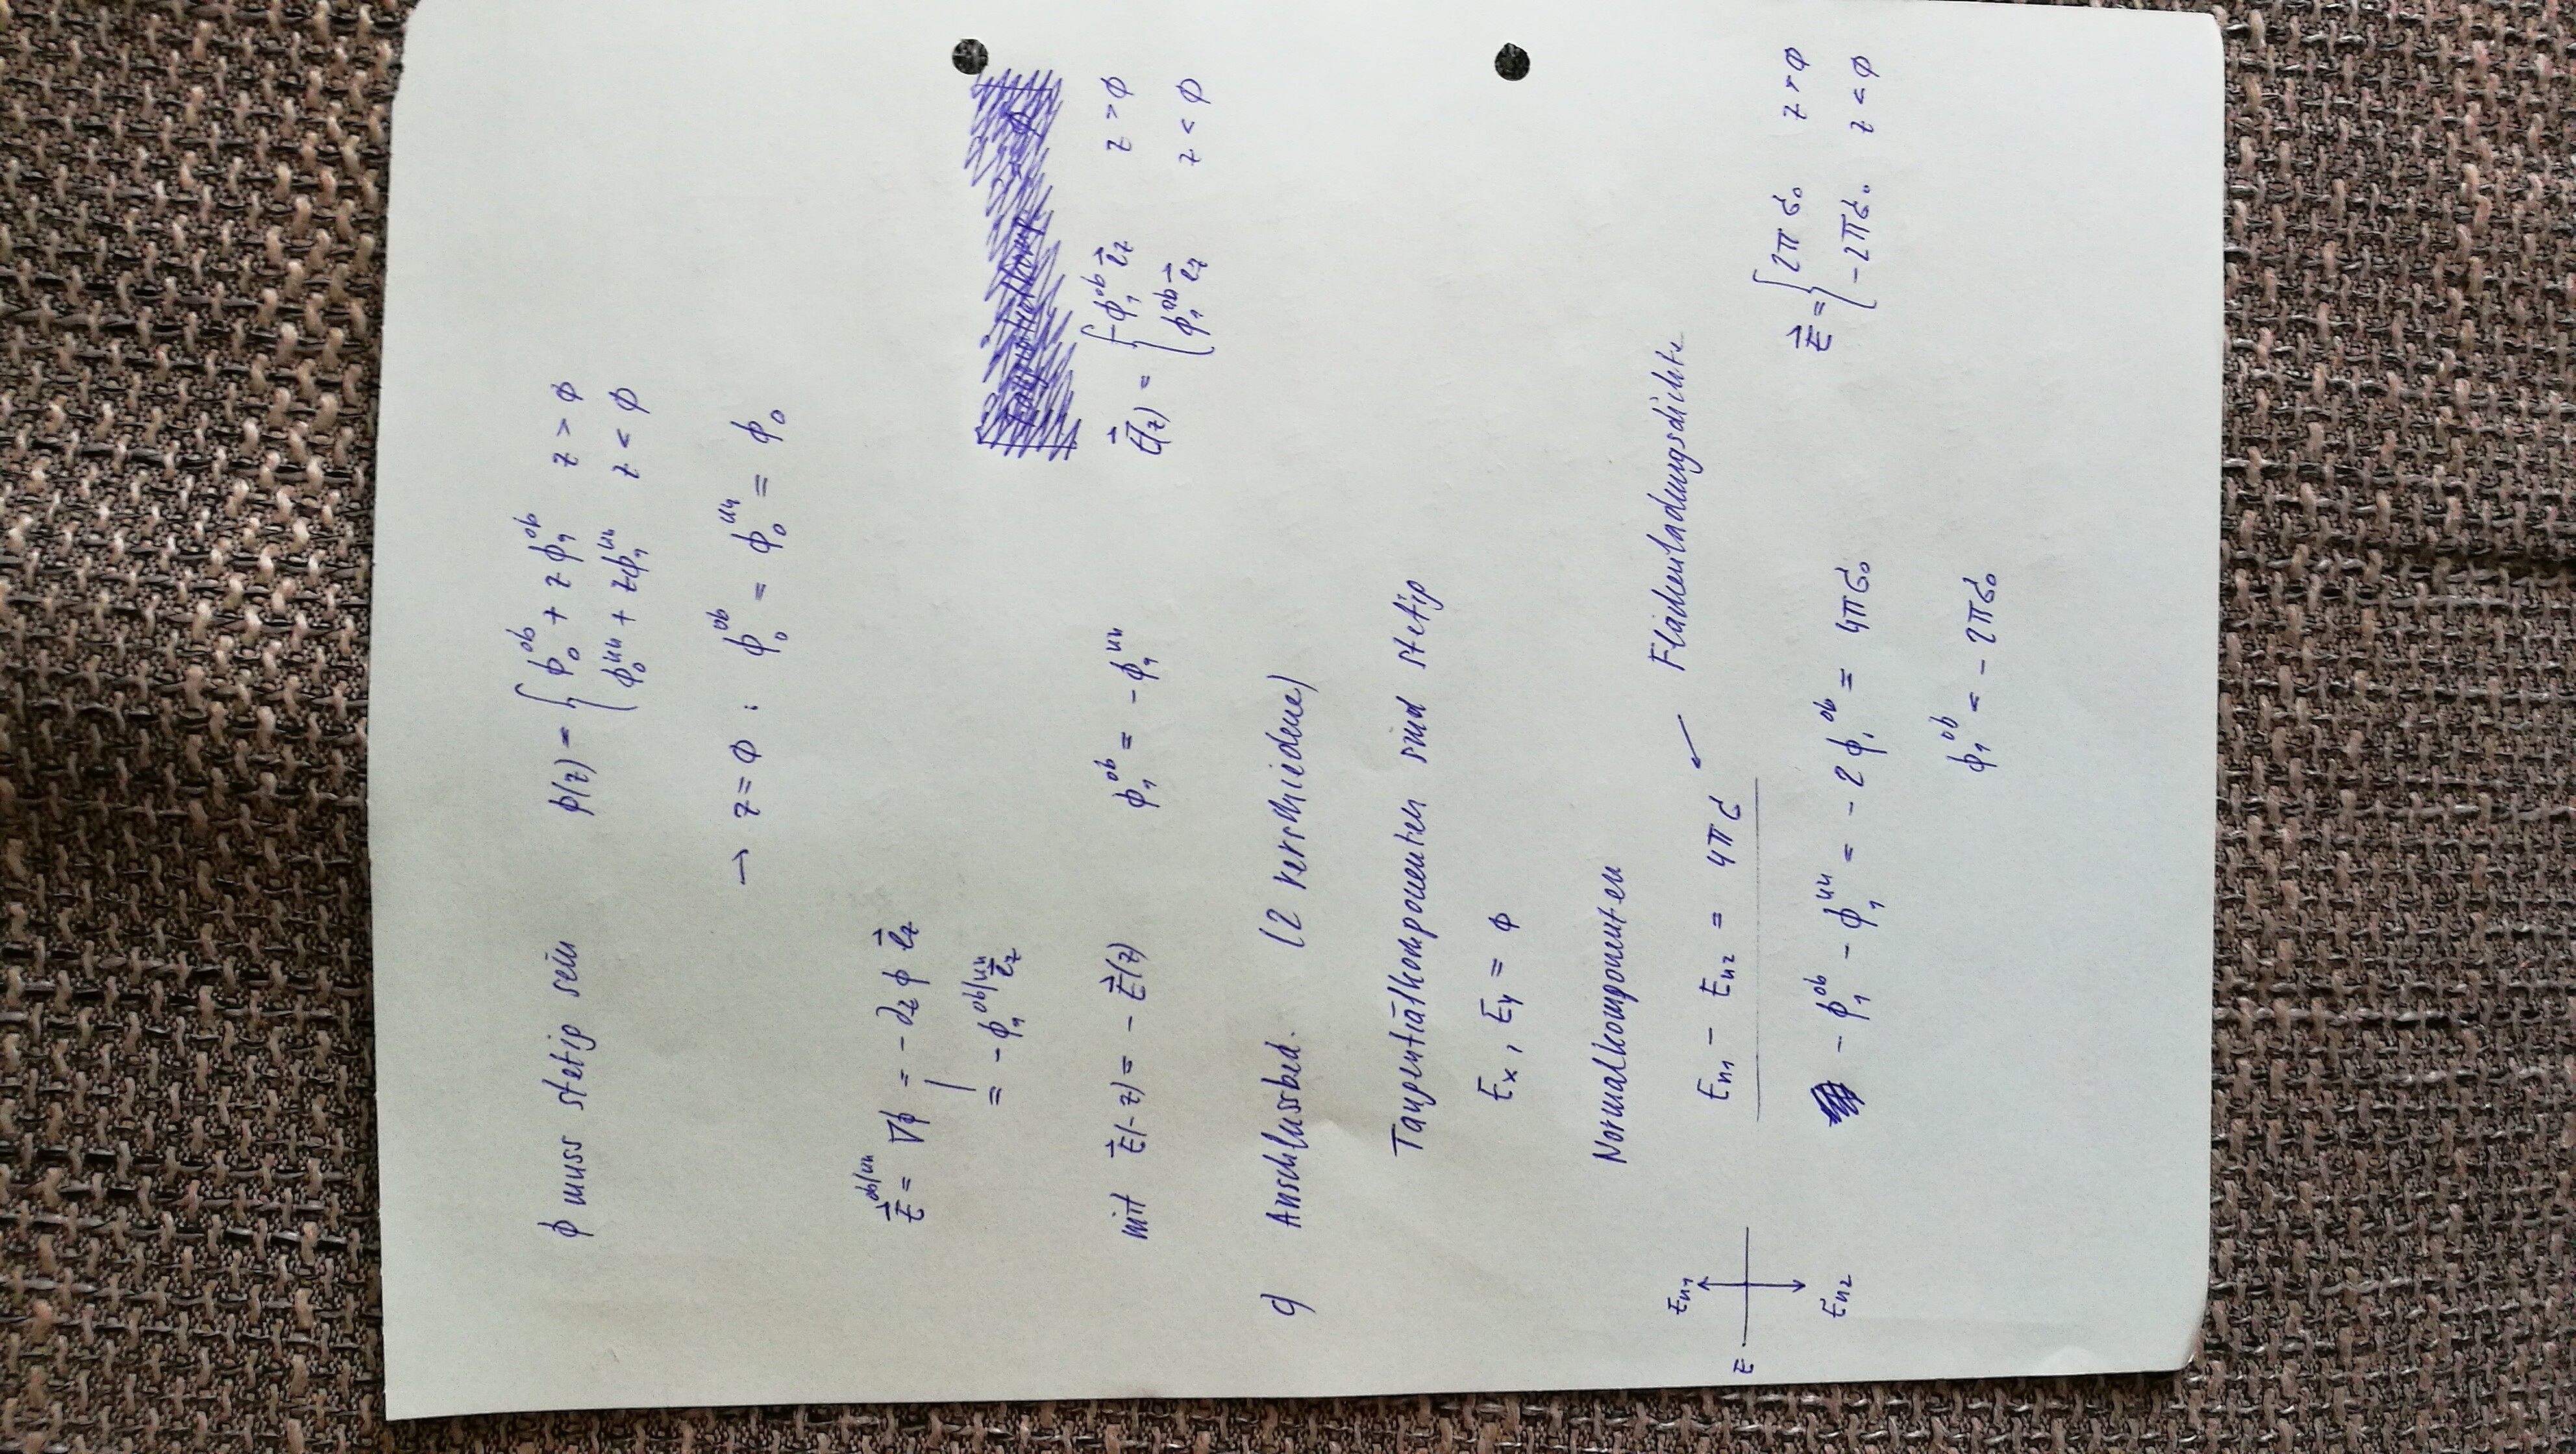 ϕ muss stetig sein ϕ(z) = { ϕ₀ᵒᵇ + z ϕ₁ᵒᵇ z > ∅
ϕ₀ᵘⁿ + zϕ₁ᵘⁿ z < ∅
→ z = ∅ : ϕ₀ᵒᵇ = ϕ₀ᵘⁿ = ϕ₀
E⃗ᵒᵇ/ᵘⁿ = ∇ϕ = - ∂zϕ e⃗z
= - ϕ₁ᵒᵇ/ᵘⁿ e⃗z
mit E⃗(-z) = - E⃗(z) ϕ₁ᵒᵇ = - ϕ₁ᵘⁿ E⃗(z) = { -ϕ₁ᵒᵇ e⃗z z > ∅
ϕ₁ᵒᵇ e⃗z z < ∅
c) Anschlussbed. (2 verschiedene)
Tangentialkomponenten sind stetig
Ex, Ey = ∅
Normalkomponenten
En1 - En2 = 4πσ ↙ Flächenladungsdichte
En1
z
En2
- ϕ₁ᵒᵇ - ϕ₁ᵘⁿ = - 2 ϕ₁ᵒᵇ = 4πσ₀ E⃗ = { 2πσ₀ z > ∅
-2πσ₀ z < ∅
ϕ₁ᵒᵇ = - 2πσ₀